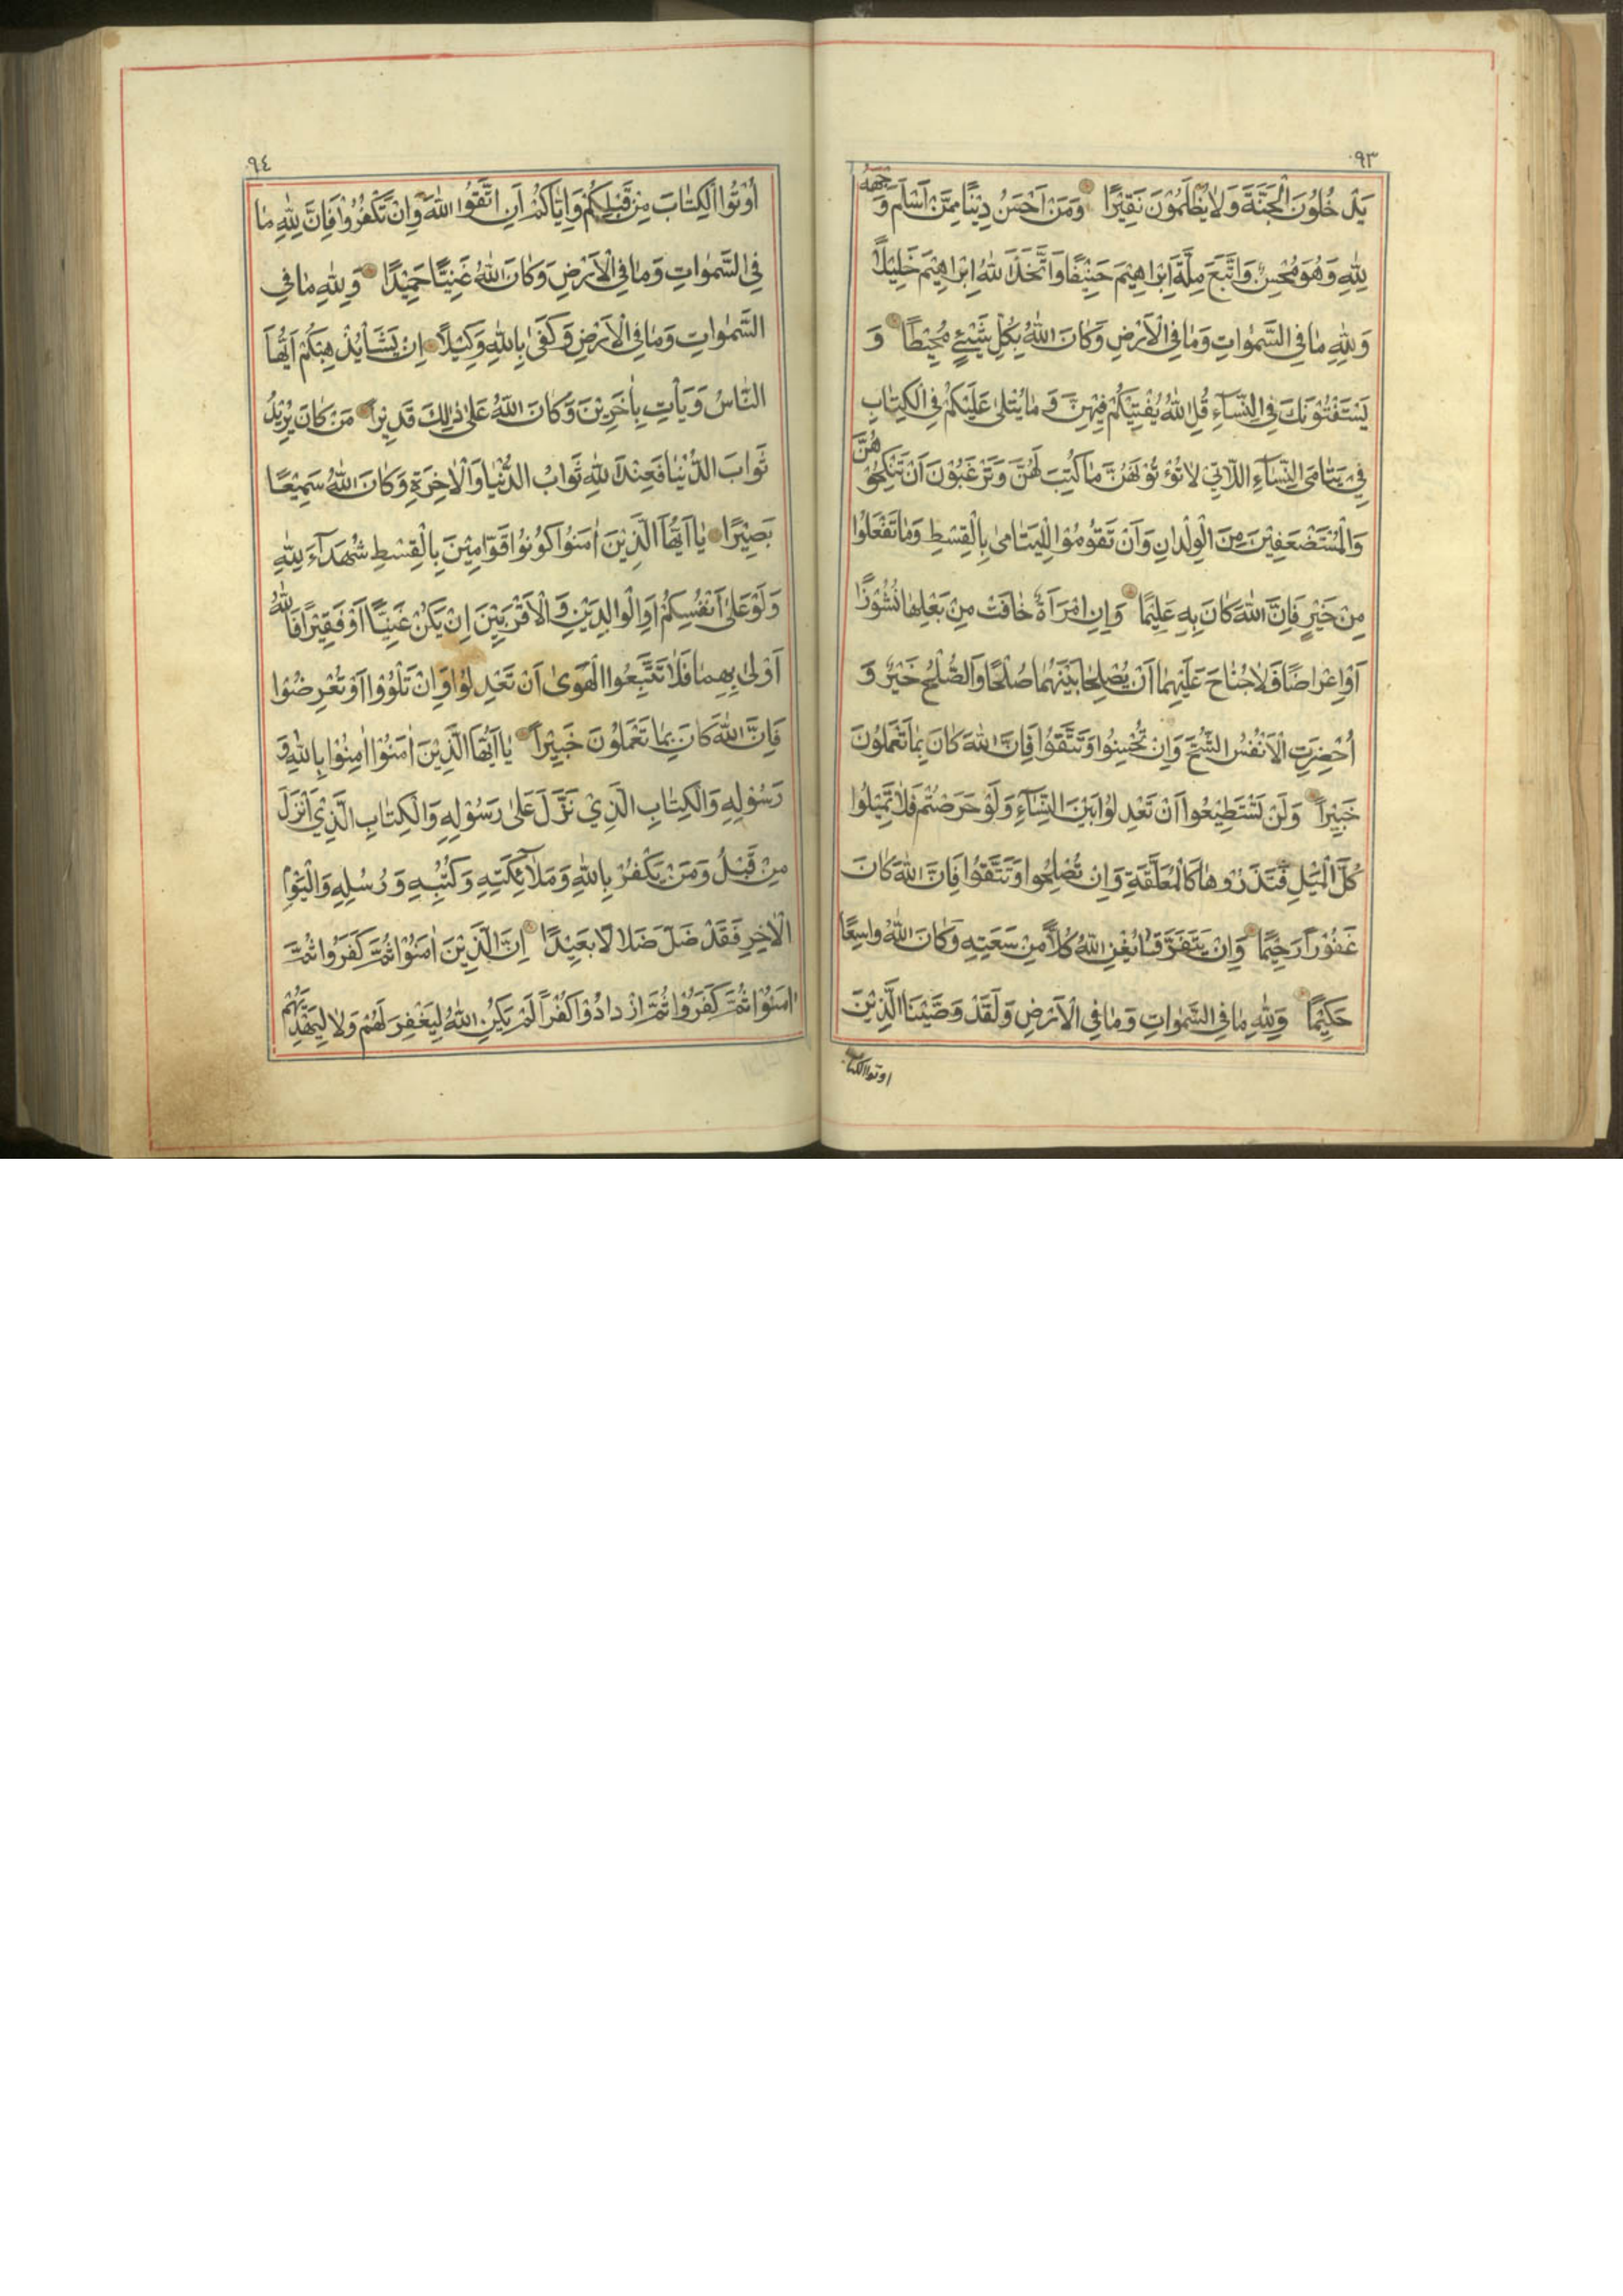 ٩٣
يَدْخُلُونَ الْجَنَّةَ وَلَا يُظْلَمُوْنَ نَقِيْرًا وَمَنْ اَحْسَنُ دِيْنًا مِمَّنْ اَسْلَمَ وَجْهَهُ
لِلّٰهِ وَهُوَ مُحْسِنٌ وَاتَّبَعَ مِلَّةَ اِبْرَاهِيْمَ حَنِيْفًا وَاتَّخَذَ اللّٰهُ اِبْرَاهِيْمَ خَلِيْلًا
وَلِلّٰهِ مَا فِي السَّمٰوَاتِ وَمَا فِي الْاَرْضِ وَكَانَ اللّٰهُ بِكُلِّ شَيْئٍ مُحِيْطًا وَ
يَسْتَفْتُوْنَكَ فِي النِّسَآءِ قُلِ اللّٰهُ يُفْتِيْكُمْ فِيْهِنَّ وَ مَا يُتْلٰى عَلَيْكُمْ فِي الْكِتَابِ
فِيْ يَتَامَى النِّسَآءِ اللَّاتِيْ لَا تُؤْتُوْنَهُنَّ مَا كُتِبَ لَهُنَّ وَتَرْغَبُوْنَ اَنْ تَنْكِحُوْهُنَّ
وَالْمُسْتَضْعَفِيْنَ مِنَ الْوِلْدَانِ وَاَنْ تَقُوْمُوْا لِلْيَتَامٰى بِالْقِسْطِ وَمَا تَفْعَلُوْا
مِنْ خَيْرٍ فَاِنَّ اللّٰهَ كَانَ بِهِ عَلِيْمًا وَاِنِ امْرَاَةٌ خَافَتْ مِنْ بَعْلِهَا نُشُوْزًا
اَوْ اِعْرَاضًا فَلَا جُنَاحَ عَلَيْهِمَا اَنْ يُصْلِحَا بَيْنَهُمَا صُلْحًا وَالصُّلْحُ خَيْرٌ وَ
اُحْضِرَتِ الْاَنْفُسُ الشُّحَّ وَاِنْ تُحْسِنُوا وَتَتَّقُوْا فَاِنَّ اللّٰهَ كَانَ بِمَا تَعْمَلُوْنَ
خَبِيْرًا وَلَنْ تَسْتَطِيْعُوا اَنْ تَعْدِلُوْا بَيْنَ النِّسَآءِ وَلَوْ حَرَصْتُمْ فَلَا تَمِيْلُوا
كُلَّ الْمَيْلِ فَتَذَرُوهَا كَالْمُعَلَّقَةِ وَاِنْ تُصْلِحُوا وَتَتَّقُوْا فَاِنَّ اللّٰهَ كَانَ
غَفُوْرًا رَحِيْمًا وَاِنْ يَتَفَرَّقَا يُغْنِ اللّٰهُ كُلًّا مِنْ سَعَتِهِ وَكَانَ اللّٰهُ وَاسِعًا
حَكِيْمًا وَلِلّٰهِ مَا فِي السَّمٰوَاتِ وَمَا فِي الْاَرْضِ وَلَقَدْ وَصَّيْنَا الَّذِيْنَ
اوتوا الكتاب
٩٤
اُوْتُوا الْكِتَابَ مِنْ قَبْلِكُمْ وَاِيَّاكُمْ اَنِ اتَّقُوا اللّٰهَ وَاِنْ تَكْفُرُوْا فَاِنَّ لِلّٰهِ مَا
فِي السَّمٰوَاتِ وَمَا فِي الْاَرْضِ وَكَانَ اللّٰهُ غَنِيًّا حَمِيْدًا وَلِلّٰهِ مَا فِي
السَّمٰوَاتِ وَمَا فِي الْاَرْضِ وَكَفٰى بِاللّٰهِ وَكِيْلًا اِنْ يَشَأْ يُذْهِبْكُمْ اَيُّهَا
النَّاسُ وَيَأْتِ بِاٰخَرِيْنَ وَكَانَ اللّٰهُ عَلٰى ذٰلِكَ قَدِيْرًا مَنْ كَانَ يُرِيْدُ
ثَوَابَ الدُّنْيَا فَعِنْدَ اللّٰهِ ثَوَابُ الدُّنْيَا وَالْاٰخِرَةِ وَكَانَ اللّٰهُ سَمِيْعًا
بَصِيْرًا يَا اَيُّهَا الَّذِيْنَ اٰمَنُوْا كُوْنُوْا قَوَّامِيْنَ بِالْقِسْطِ شُهَدَآءَ لِلّٰهِ
وَلَوْ عَلٰى اَنْفُسِكُمْ اَوِ الْوَالِدَيْنِ وَ الْاَقْرَبِيْنَ اِنْ يَكُنْ غَنِيًّا اَوْ فَقِيْرًا فَاللّٰهُ
اَوْلٰى بِهِمَا فَلَا تَتَّبِعُوا الْهَوٰى اَنْ تَعْدِلُوْا وَاِنْ تَلْوُوْا اَوْ تُعْرِضُوْا
فَاِنَّ اللّٰهَ كَانَ بِمَا تَعْمَلُوْنَ خَبِيْرًا يَا اَيُّهَا الَّذِيْنَ اٰمَنُوْا اٰمِنُوْا بِاللّٰهِ وَ
رَسُوْلِهِ وَالْكِتَابِ الَّذِيْ نَزَّلَ عَلٰى رَسُوْلِهِ وَالْكِتَابِ الَّذِيْ اَنْزَلَ
مِنْ قَبْلُ وَمَنْ يَكْفُرْ بِاللّٰهِ وَمَلَآئِكَتِهِ وَكُتُبِهِ وَرُسُلِهِ وَالْيَوْمِ
الْاٰخِرِ فَقَدْ ضَلَّ ضَلَالًا بَعِيْدًا اِنَّ الَّذِيْنَ اٰمَنُوْا ثُمَّ كَفَرُوا ثُمَّ
اٰمَنُوْا ثُمَّ كَفَرُوْا ثُمَّ ازْدَادُوْا كُفْرًا لَمْ يَكُنِ اللّٰهُ لِيَغْفِرَ لَهُمْ وَلَا لِيَهْدِيَهُمْ